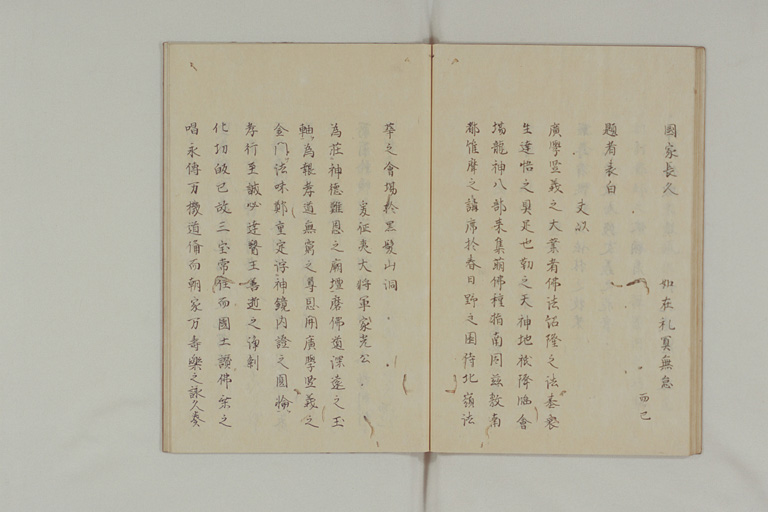 国家長久　如在礼奠無怠
而已
題者表白
夫以
廣學竪義之大業者佛法紹隆之法基衆
生達悟之具足也勅之天神地祇降臨會
場龍神八部来集萠佛種指南同茲敎南
都惟摩之講席於春日野之国待北嶺法
華之會場於黒髪山洞
爰征夷大将軍家光公
為荘神徳難思之廟壇磨佛道深遠之玉
軸為報孝道無窮之尊恩開廣學竪義之
金門法味鄭重定浮神鏡内證之圓愉
孝行至誠必達醫王善逝之浄刹
化功故已故三宝常住而國土讃佛乗之
唱永傳万機道備而朝家万寿樂之詠久奏